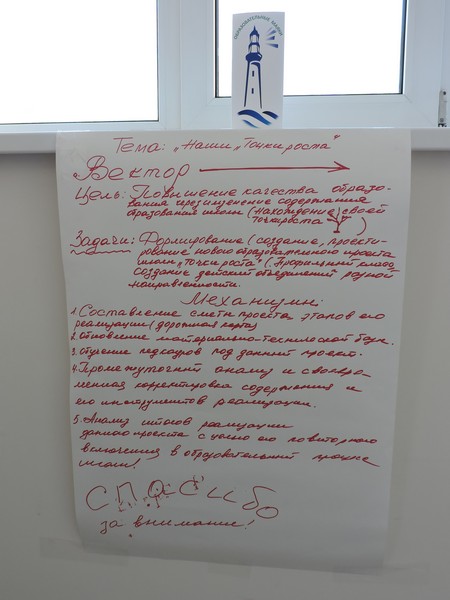 ОБРАЗОВАТЕЛЬНЫЕ МАЯКИ
Тема: „Наши „Точки роста"
Вектор
Цель: Повышение качества образо-
вания через изменение содержания
образования школы (Нахождение своей
точки роста
Задачи: Формирование (создание, проекти-
рование нового образовательного проекта
школы „Точки роста" (Профильный класс,
создание детских объединений разной
направленности.
Механизмы:
1. Составление сметы проекта, этапов его
реализации (дорожная карта)
2. Обновление материально-технической базы.
3. Обучение педкадров под данный проект.
4. Промежуточный анализ и своевре-
менная корректировка содержания и
его инструментов реализации.
5. Анализ итогов реализации
данного проекта с целью его повторного
включения в образовательный процесс
школы!
СПАСИБО
за внимание!